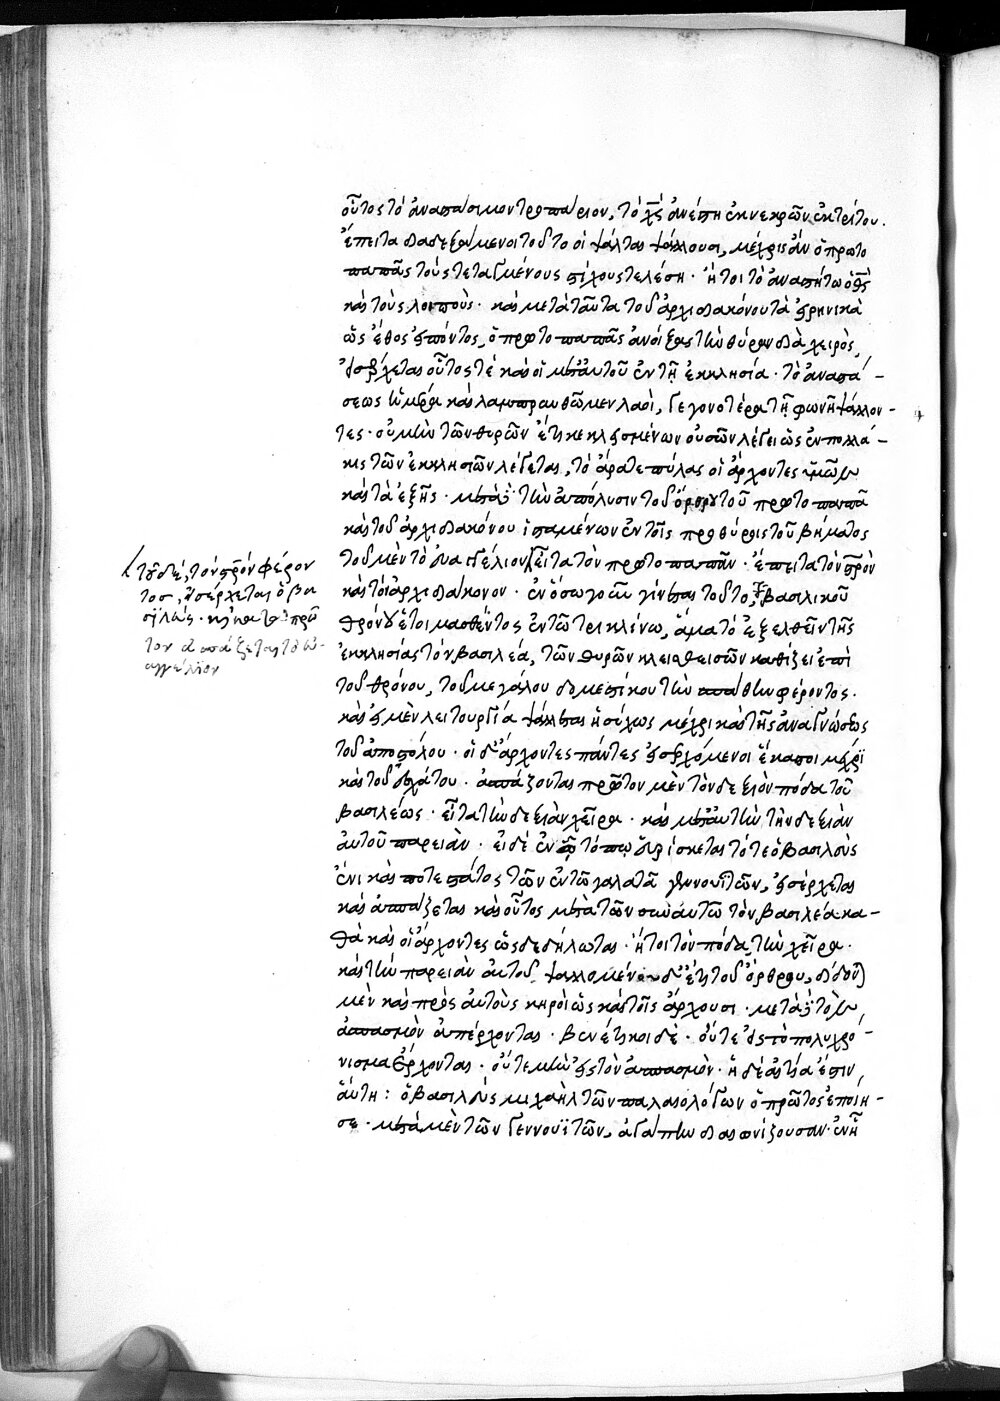 οὗτος τὸ ἀναστάσιμον τροπάριον, τὸ χς ἀνέστη ἐκ νεκρῶν ἐκ τρίτου.
ἔπειτα διαδεξάμενοι τοῦτο οἱ ψάλται ψάλλουσι, μέχρις ἂν ὁ πρωτο
παπᾶς τοὺς τεταγμένους στίχους τελέση· ἤτοι τὸ ἀναστήτω ὁ θς
καὶ τοὺς λοιπούς· καὶ μετὰ ταῦτα τοῦ ἀρχιδιακόνου τὰ εἰρηνικὰ
ὡς ἔθος εἰπόντος, ὁ πρωτοπαπᾶς ἀνοίξας τὴν θύραν διὰ χειρὸς,
εἰσέρχεται οὗτός τε καὶ οἱ μετ' αὐτοῦ ἐν τῇ ἐκκλησία· τὸ ἀναστά-
σεως ἡμέρα καὶ λαμπρυνθῶμεν λαοὶ, γεγονοτέρα τῇ φωνῇ ψάλλον-
τες· οὐ μὴν τῶν θυρῶν ἔτι κεκλεισμένων οὐσῶν λέγει ὡς ἐν πολλα-
κις τῶν ἐκκλησιῶν λέγεται, τὸ ἄρατε πύλας οἱ ἄρχοντες ὑμῶν
καὶ τὰ ἑξῆς· μετὰ δὲ τὴν ἀπόλυσιν τοῦ ὄρθρου τοῦ πρωτοπαπᾶ
καὶ τοῦ ἀρχιδιακόνου ἱσταμένων ἐν τοῖς προθύροις τοῦ βήματος
τοῦ μὲν τὸ εὐαγγέλιον εἶτα τὸν πρωτοπαπᾶν· ἔπειτα τὸν στρὸν
καὶ τὸν ἀρχιδιάκονον· ἐν ὅσω γοῦν γίνεται τοῦτο, βασιλικοῦ
θρόνου ἑτοιμασθέντος ἐν τῶ τρικλίνω, ἅμα τὸ ἐξελθεῖν τῆς
ἐκκλησίας τὸν βασιλέα, τῶν θυρῶν κλεισθεισῶν καθίζει ἐπὶ
τοῦ θρόνου, τοῦ μεγάλου δομεστίκου τὴν σπάθην φέροντος.
καὶ ἡ μὲν λειτουργία ψάλλεται ἡσύχως μέχρι καὶ τῆς ἀναγνώσεως
τοῦ ἀποστόλου· οἱ δ' ἄρχοντες πάντες εἰσερχόμενοι ἕκαστοι μέχρι
καὶ τοῦ ἐσχάτου· ἀσπάζονται πρῶτον μὲν τὸν δεξιὸν πόδα τοῦ
βασιλέως· εἶτα τὴν δεξιὰν χεῖρα· καὶ μετ' αὐτὴν τὴν δεξιὰν
αὐτοῦ παρειάν· εἰ δὲ ἐν ᾧ τόπω εὑρίσκεται τότε ὁ βασιλεὺς
ἔνι καὶ ποτεστάτος τῶν ἐν τῶ γαλατᾶ γεννουϊτῶν, εἰσέρχεται
καὶ ἀσπάζεται καὶ οὗτος μετὰ τῶν σὺν αὐτῶ τὸν βασιλέα κα-
θὰ καὶ οἱ ἄρχοντες ὡς δεδήλωται· ἤτοι τὸν πόδα, τὴν χεῖρα·
καὶ τὴν παρειὰν αὐτοῦ ψαλλομένου δ' ἔτι τοῦ ὄρθρου, δίδοται
μὲν καὶ πρὸς αὐτοὺς κηροὶ ὡς καὶ τοῖς ἄρχουσι· μετὰ δὲ τὸν
ἀσπασμὸν ἀπέρχονται· βενέτικοι δὲ· οὔτε εἰς τὸ πολυχρό-
νισμα ἔρχονται· οὔτε μὴν εἰς τὸν ἀσπασμὸν· ἡ δὲ αἰτία ἔστιν,
αὕτη: ὁ βασιλεὺς μιχαὴλ τῶν παλαιολόγων ὁ πρῶτος ἐποίη-
σε· μετὰ μὲν τῶν γεννουϊτῶν, ἀγάπην διαιωνίζουσαν· ἐν ᾗ
τοῦ δέ, τὸν στρὸν φέρον
τος, εἰσέρχεται ὁ βα
σιλεύς· καὶ πρῶ
τον ἀσπάζεται τὸ εὐ-
αγγέλιον